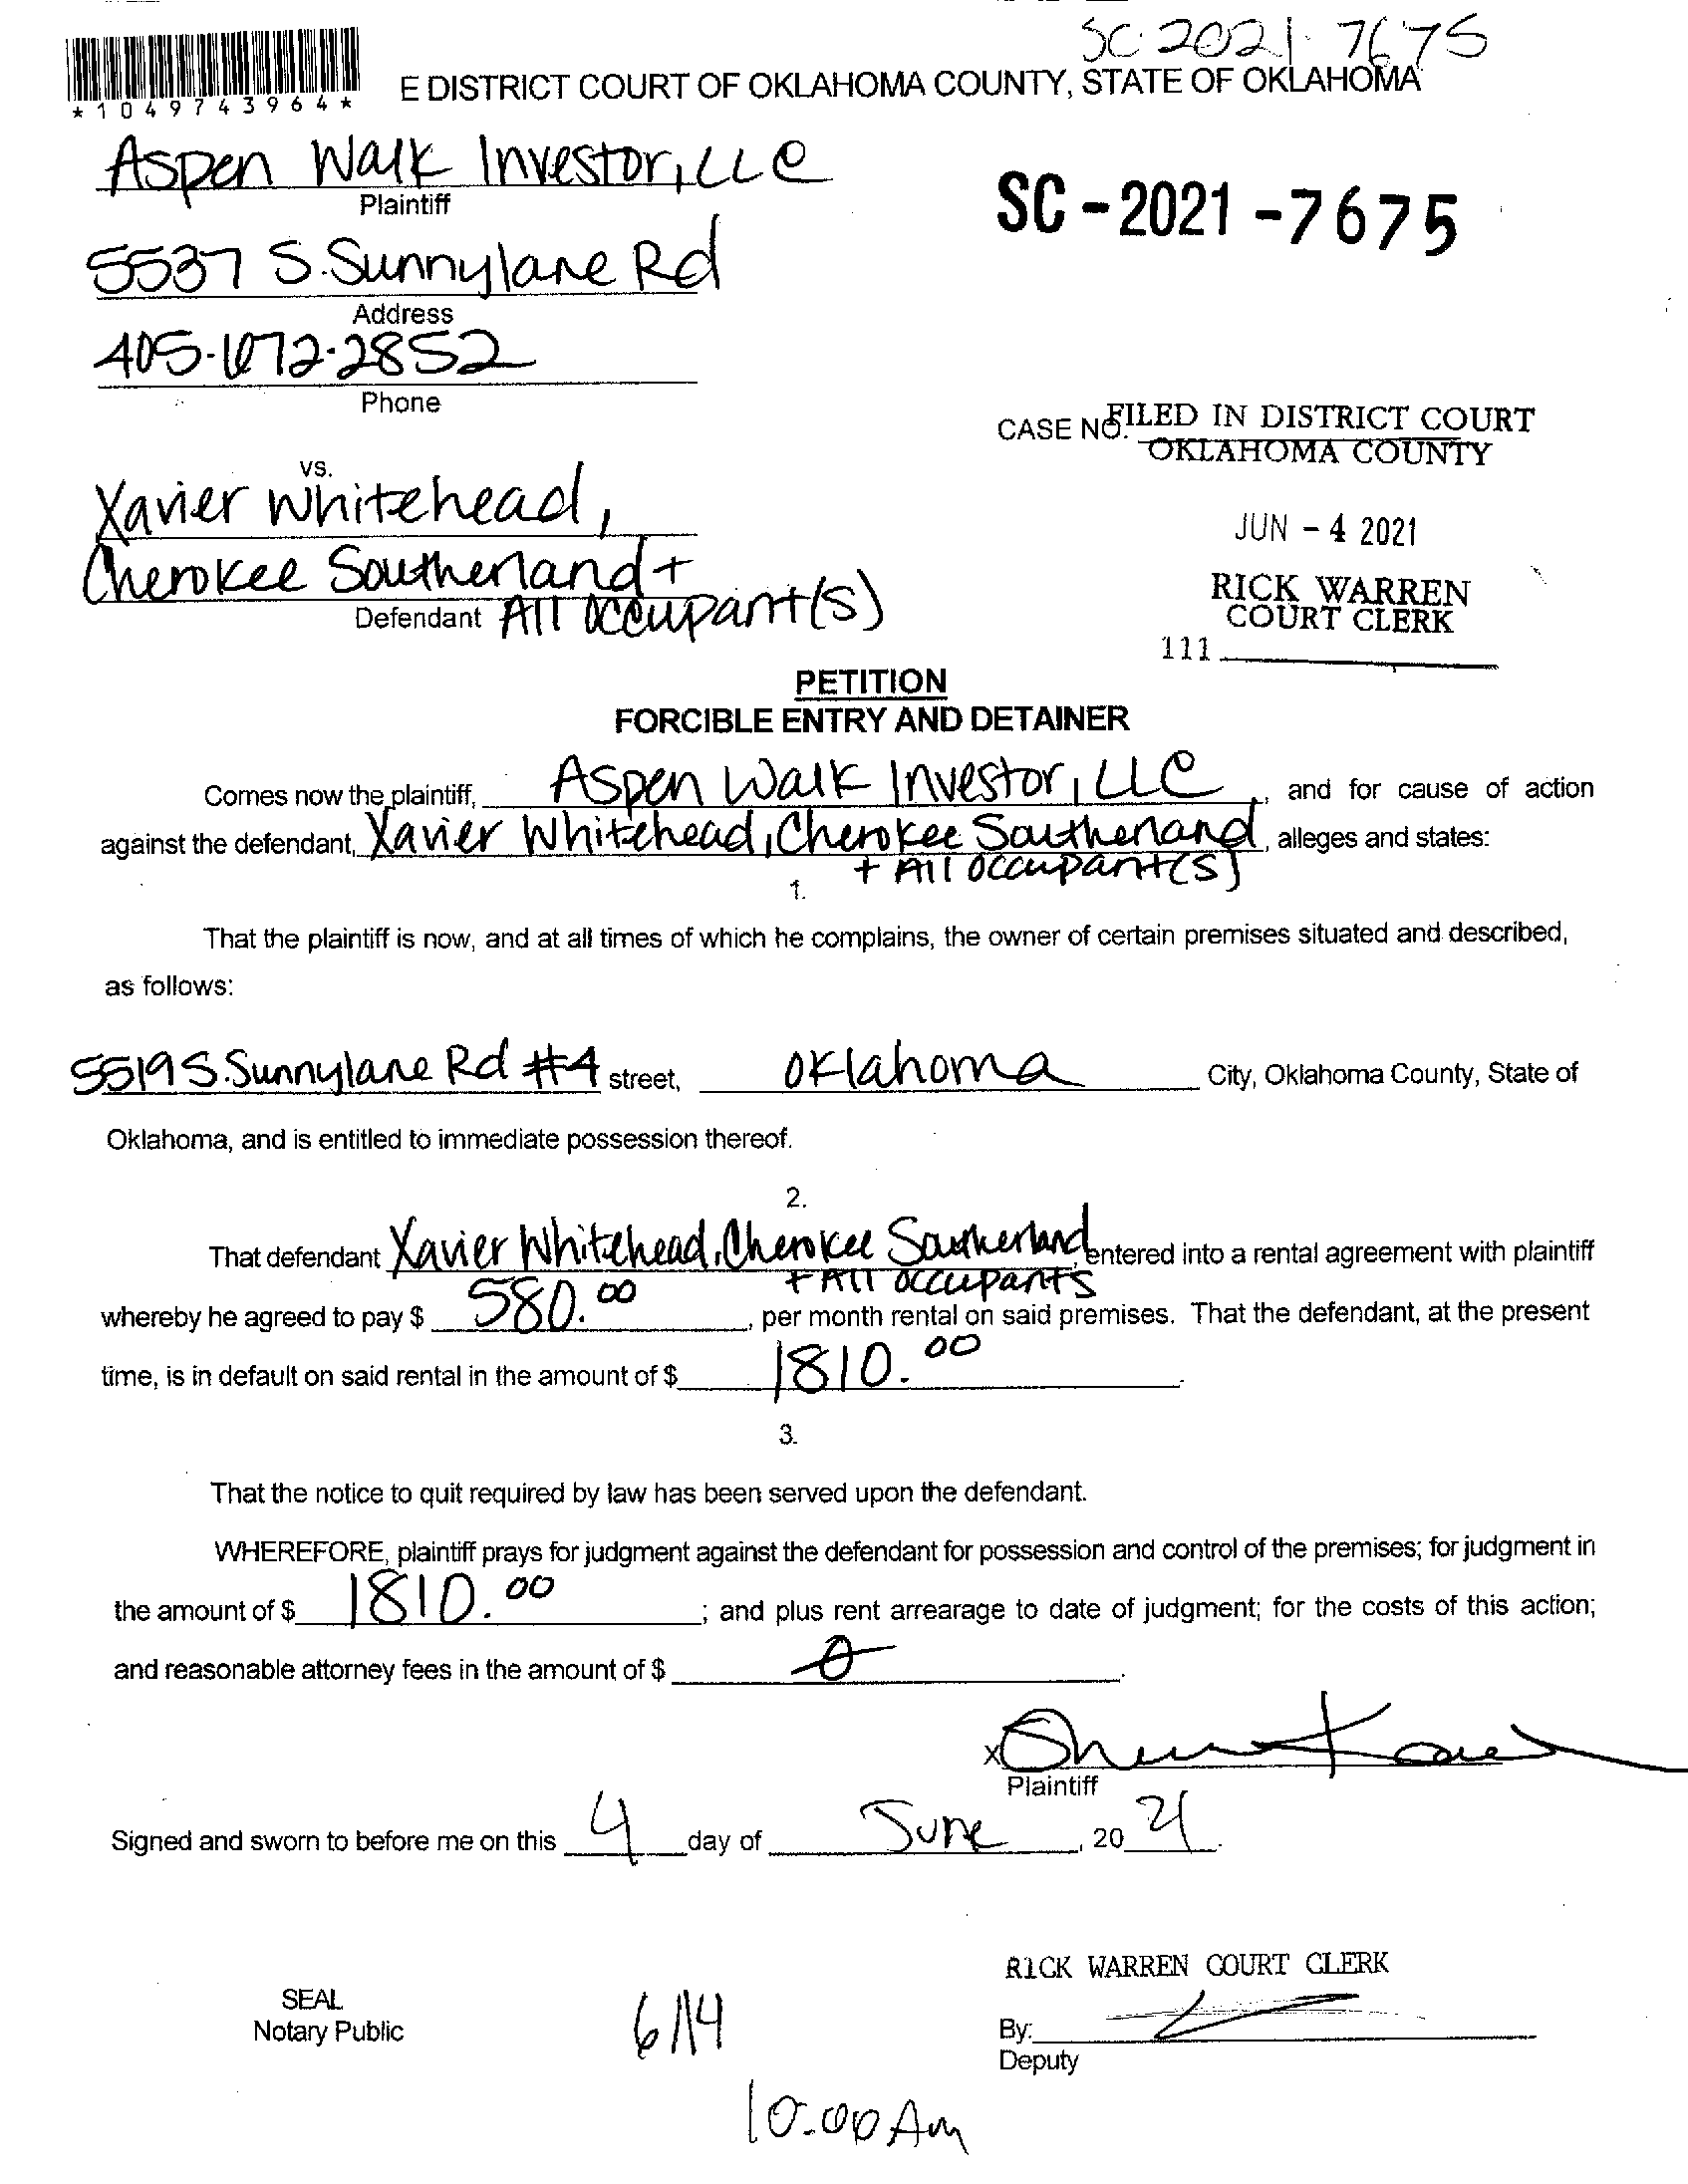 SC-2021-7675
*1049743964*
E DISTRICT COURT OF OKLAHOMA COUNTY, STATE OF OKLAHOMA
Aspen Walk Investor, LLC
Plaintiff
SC-2021-7675
5537 S. Sunnylane Rd
Address
405-672-2852
Phone
CASE NO. FILED IN DISTRICT COURT
OKLAHOMA COUNTY
vs.
Xavier Whitehead,
JUN - 4 2021
Cherokee Southerland +
Defendant All Occupant(s)
RICK WARREN
COURT CLERK
111
PETITION
FORCIBLE ENTRY AND DETAINER
Comes now the plaintiff, Aspen Walk Investor, LLC, and for cause of action
against the defendant, Xavier Whitehead, Cherokee Southerland, alleges and states:
+ All Occupant(s)
1.
That the plaintiff is now, and at all times of which he complains, the owner of certain premises situated and described,
as follows:
5519 S. Sunnylane Rd #4 street, Oklahoma City, Oklahoma County, State of
Oklahoma, and is entitled to immediate possession thereof.
2.
That defendant Xavier Whitehead, Cherokee Southerland, entered into a rental agreement with plaintiff
+ All occupants
whereby he agreed to pay $ 580.00, per month rental on said premises. That the defendant, at the present
time, is in default on said rental in the amount of $ 1810.00.
3.
That the notice to quit required by law has been served upon the defendant.
WHEREFORE, plaintiff prays for judgment against the defendant for possession and control of the premises; for judgment in
the amount of $ 1810.00; and plus rent arrearage to date of judgment; for the costs of this action;
and reasonable attorney fees in the amount of $ 0.
X
Plaintiff
Signed and sworn to before me on this 4 day of June, 2021.
RICK WARREN COURT CLERK
SEAL
Notary Public
6/14
By:
Deputy
10:00 Am